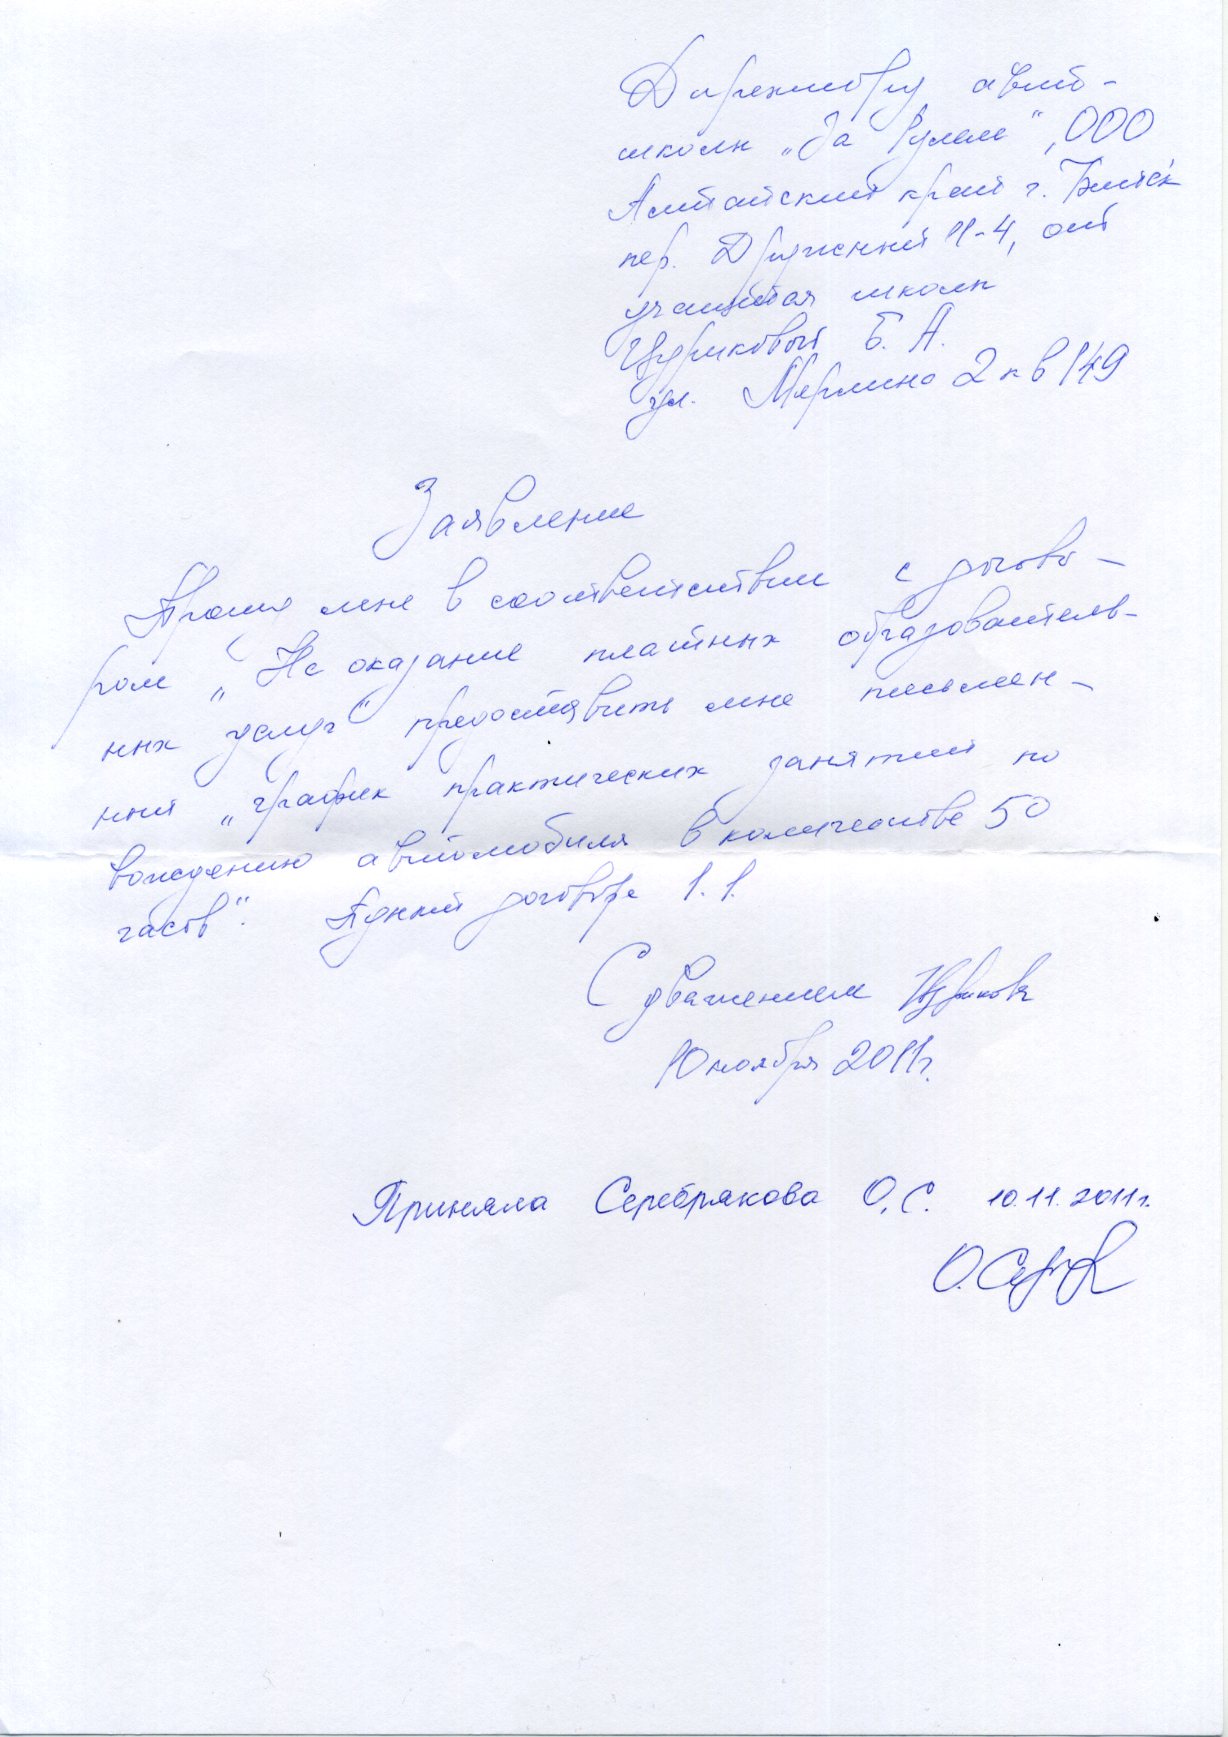 Директору авто-
школы „За Рулем“, ООО
Алтайский край г. Бийск
пер. Дружный 11-4, от
учащейся школы
Цуриковой Б. А.
ул. Мерлина 2 кв 149
Заявление
Прошу мне в соответствии с догово-
ром „На оказание платных образователь-
ных услуг“ предоставить мне письмен-
ный „график практических занятий по
вождению автомобиля в количестве 50
часов“. Пункт договора 1.1.
С уважением Цурикова
10 ноября 2011г.
Приняла Серебрякова О.С. 10.11.2011г.